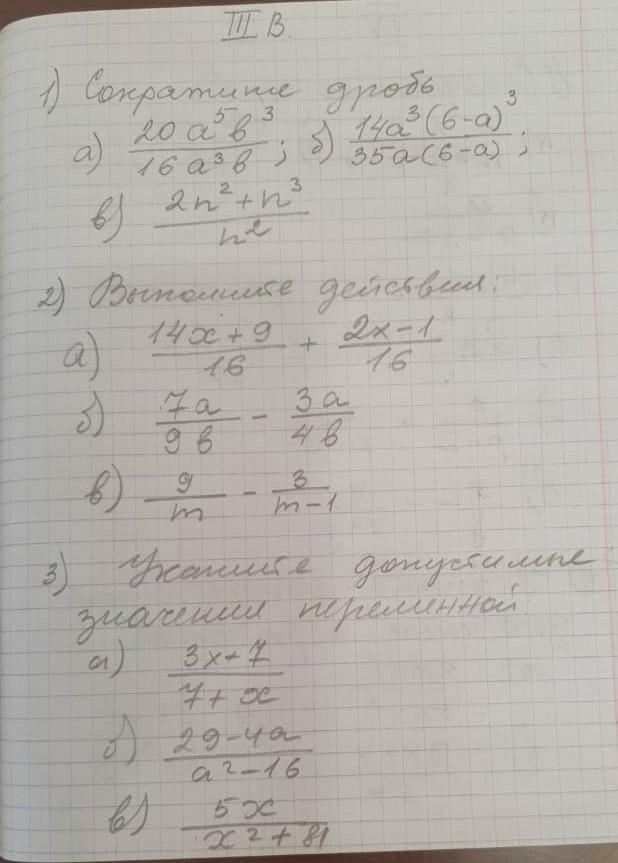 III В.
1) Сократите дробь
а) \frac{20a^5b^3}{16a^3b}; б) \frac{14a^3(6-a)^3}{35a(6-a)};
в) \frac{2n^2+n^3}{n^2}
2) Выполните действия:
а) \frac{14x+9}{16} + \frac{2x-1}{16}
б) \frac{7a}{9b} - \frac{3a}{4b}
в) \frac{9}{m} - \frac{3}{m-1}
3) Укажите допустимые
значения переменной
а) \frac{3x+7}{7+x}
б) \frac{29-4a}{a^2-16}
в) \frac{5x}{x^2+81}